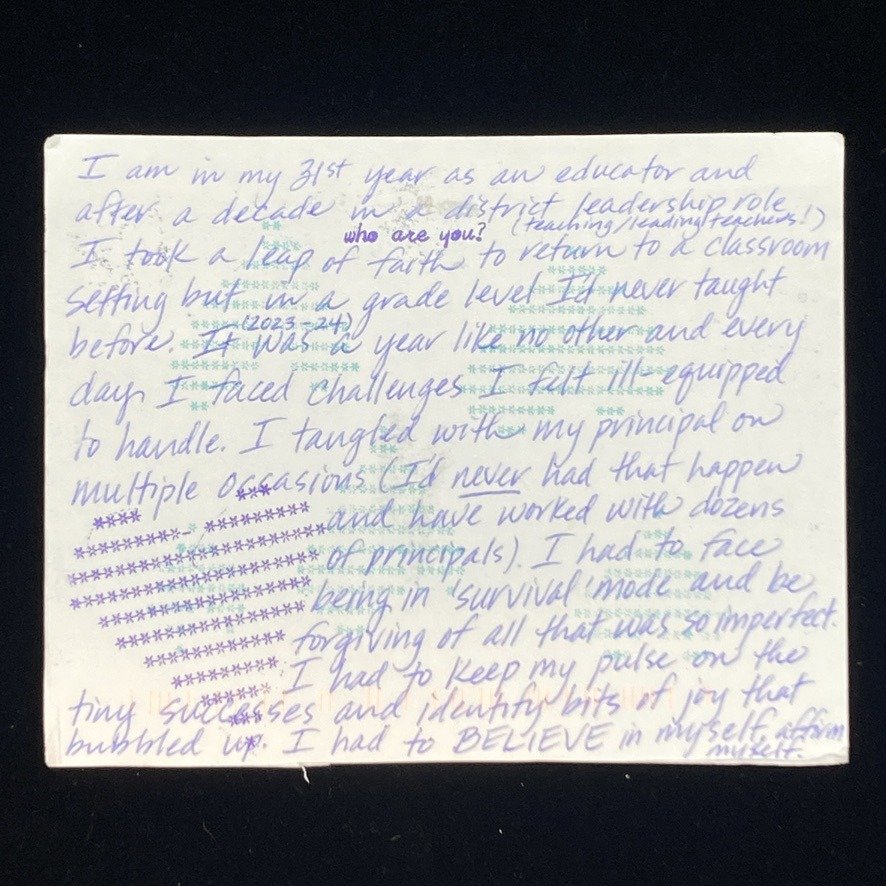 I am in my 31st year as an educator and
after a decade in a district leadership role
(teaching/leading teachers!)
who are you?
I took a leap of faith to return to a classroom
setting but in a grade level I'd never taught
(2023-24)
before. It was a year like no other and every
day I faced challenges I felt ill-equipped
to handle. I tangled with my principal on
multiple occasions (I'd never had that happen
and have worked with dozens
of principals). I had to face
being in 'survival' mode and be
forgiving of all that was so imperfect.
I had to keep my pulse on the
tiny successes and identify bits of joy that
bubbled up. I had to BELIEVE in myself, affirm
myself.